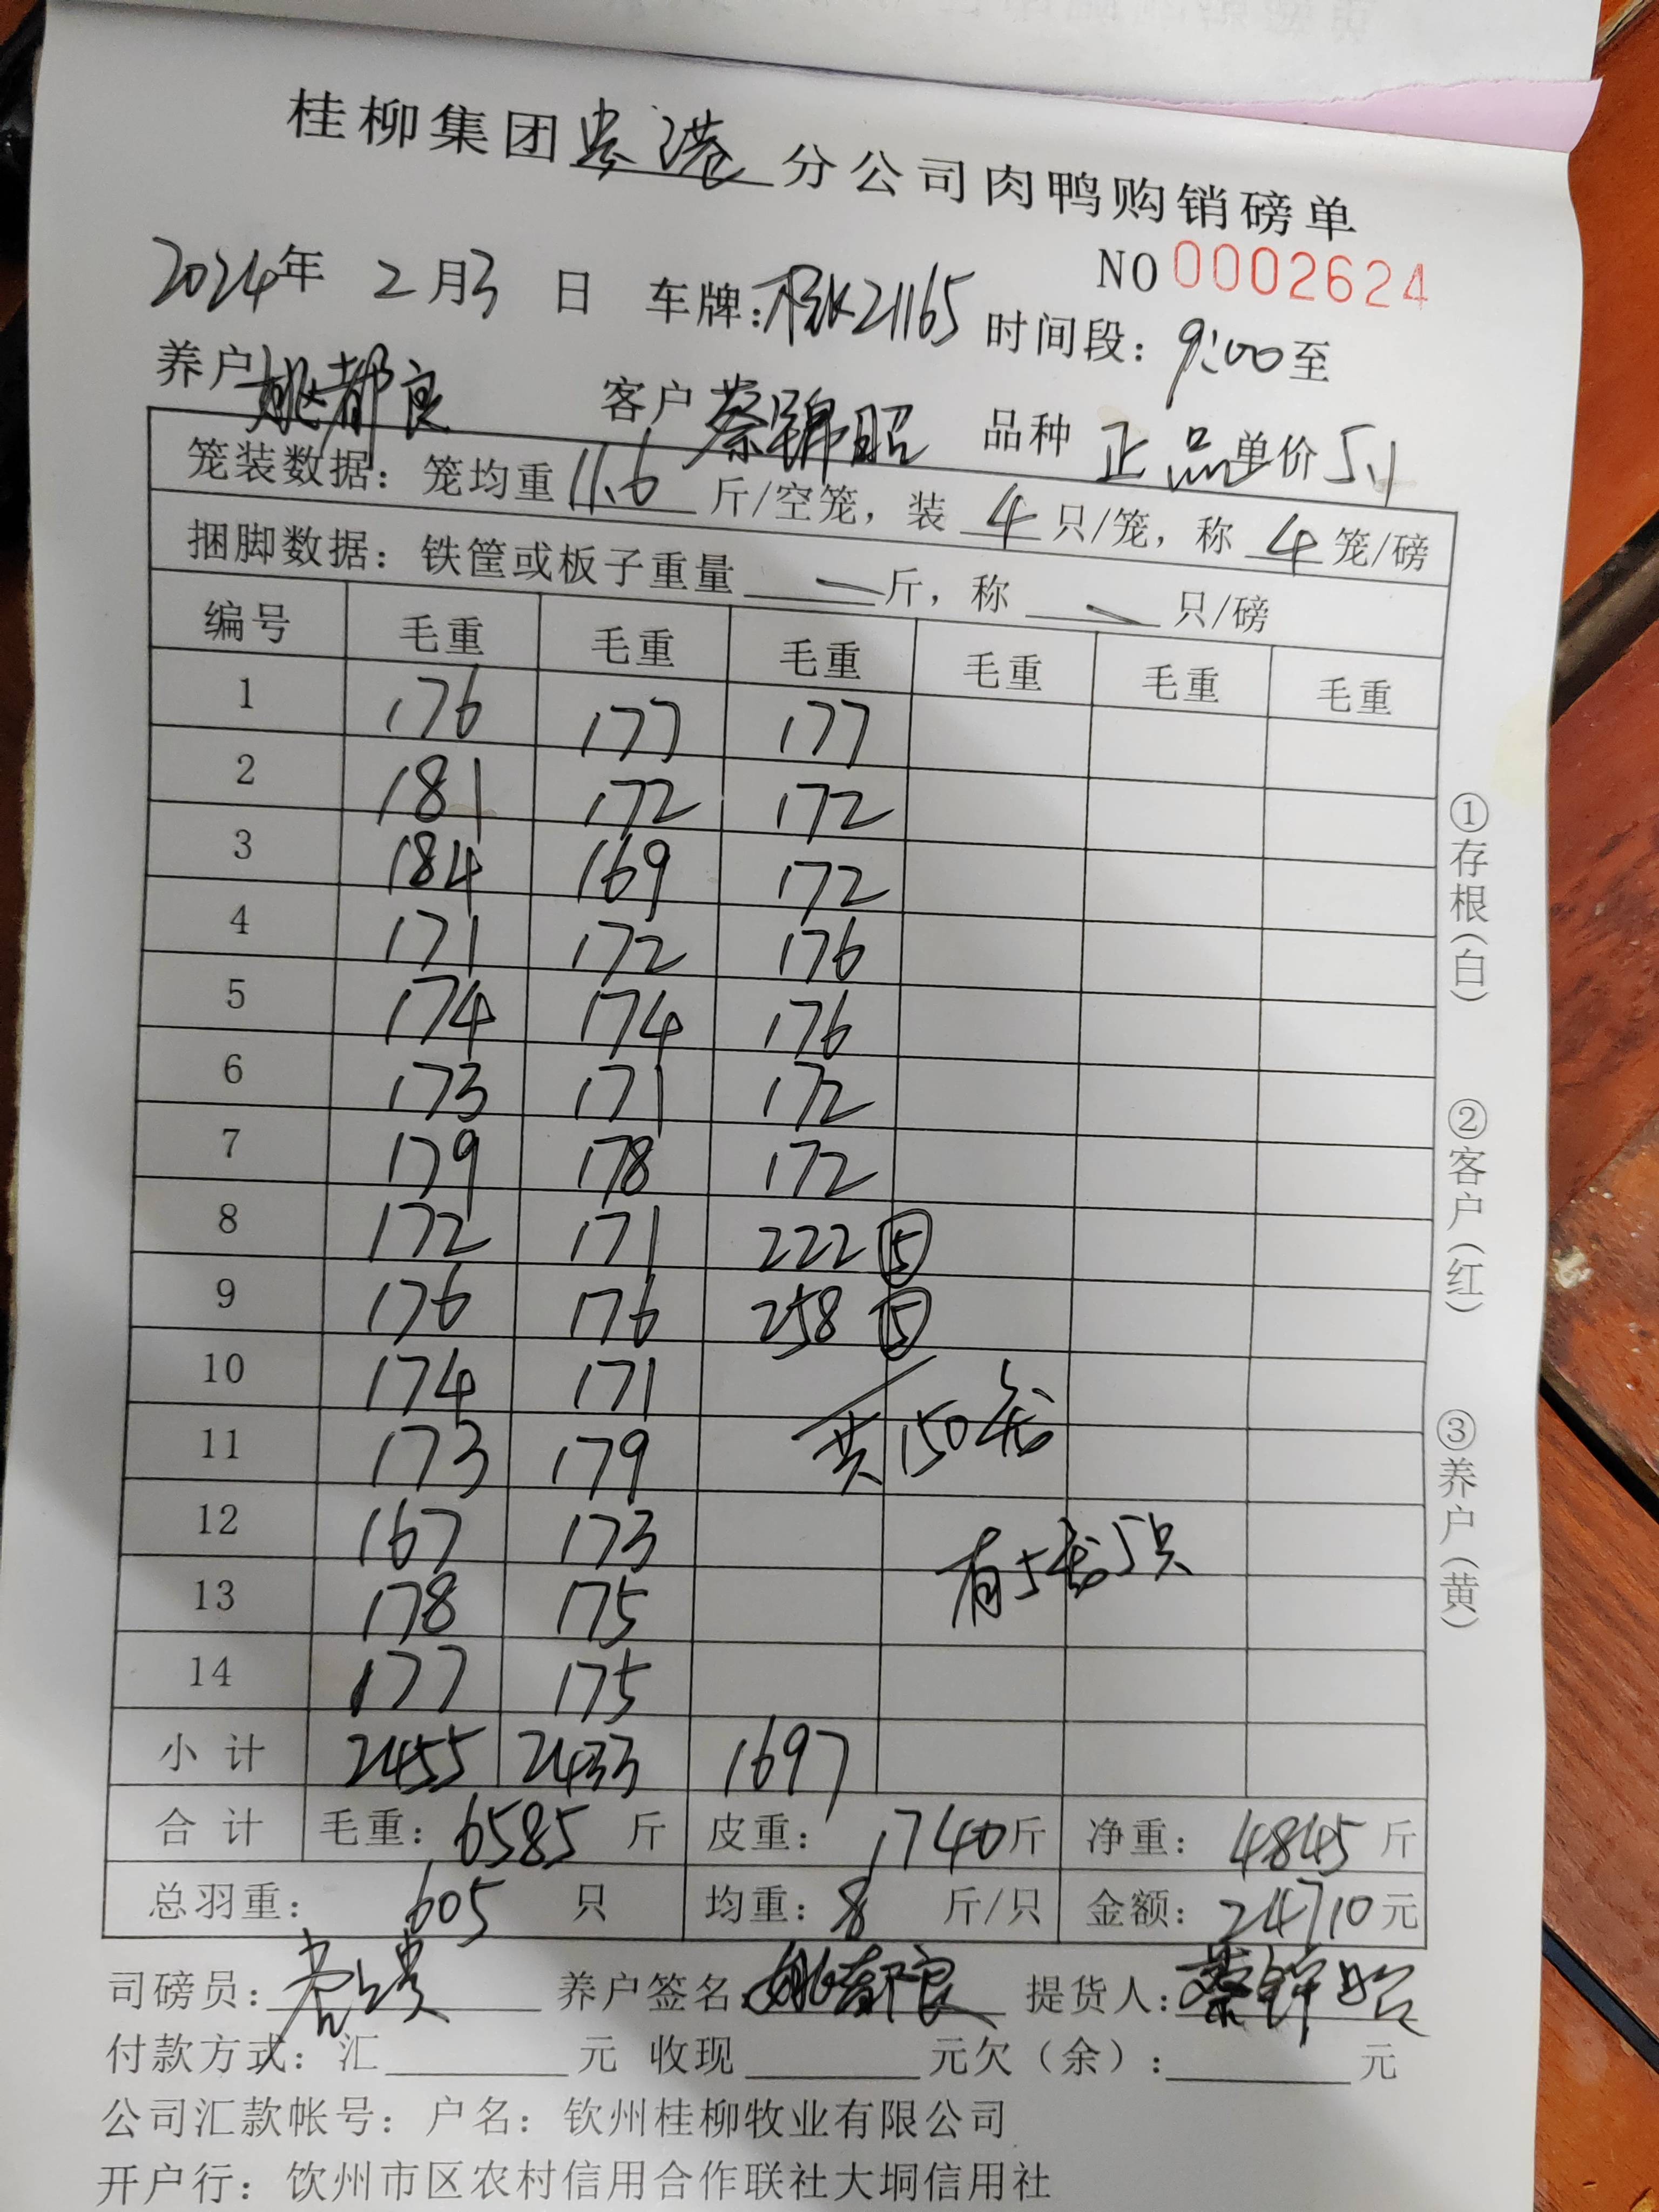 桂柳集团贵港分公司肉鸭购销磅单
NO 0002624
2024年 2月3日 车牌:桂K21165 时间段:9:00至
养户姚都良 客户蔡锦昭 品种 正品 单价5.1
笼装数据:笼均重11.6斤/空笼,装4只/笼,称4笼/磅
捆脚数据:铁筐或板子重量 — 斤,称 — 只/磅
编号 毛重 毛重 毛重 毛重 毛重 毛重
1 176 177 177
2 181 172 172
3 184 169 172
4 171 172 176
5 174 174 176
6 173 171 172
7 179 178 172
8 172 171 222 ⑤
9 176 176 258 ⑤
10 174 171
共150笼
11 173 179
12 167 173
有5笼5只
13 178 175
14 177 175
小计 2455 2433 1697
合计 毛重:6585斤 皮重:1740斤 净重:4845斤
总羽重:605只 均重:8斤/只 金额:24710元
司磅员: 养户签名:姚都良 提货人:蔡锦昭
付款方式:汇 元 收现 元欠(余): 元
公司汇款帐号:户名:钦州桂柳牧业有限公司
开户行:饮州市区农村信用合作联社大垌信用社
①存根(白) ②客户(红) ③养户(黄)